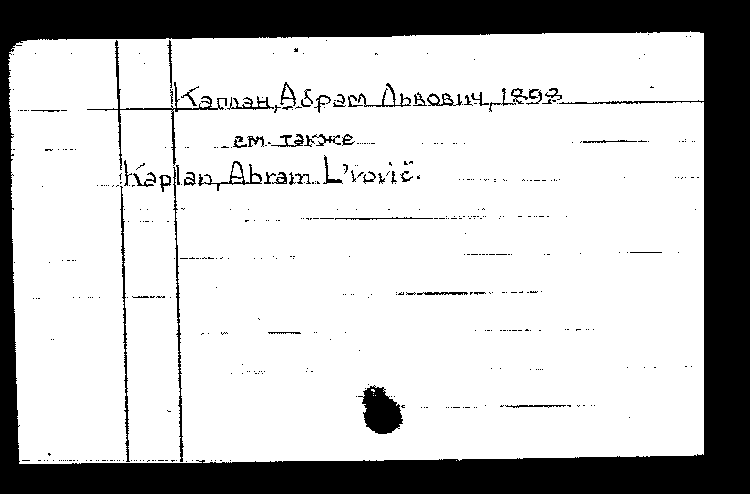 Каплан, Абрам Львович, 1898
см. также
Kaplan, Abram L'vovič.